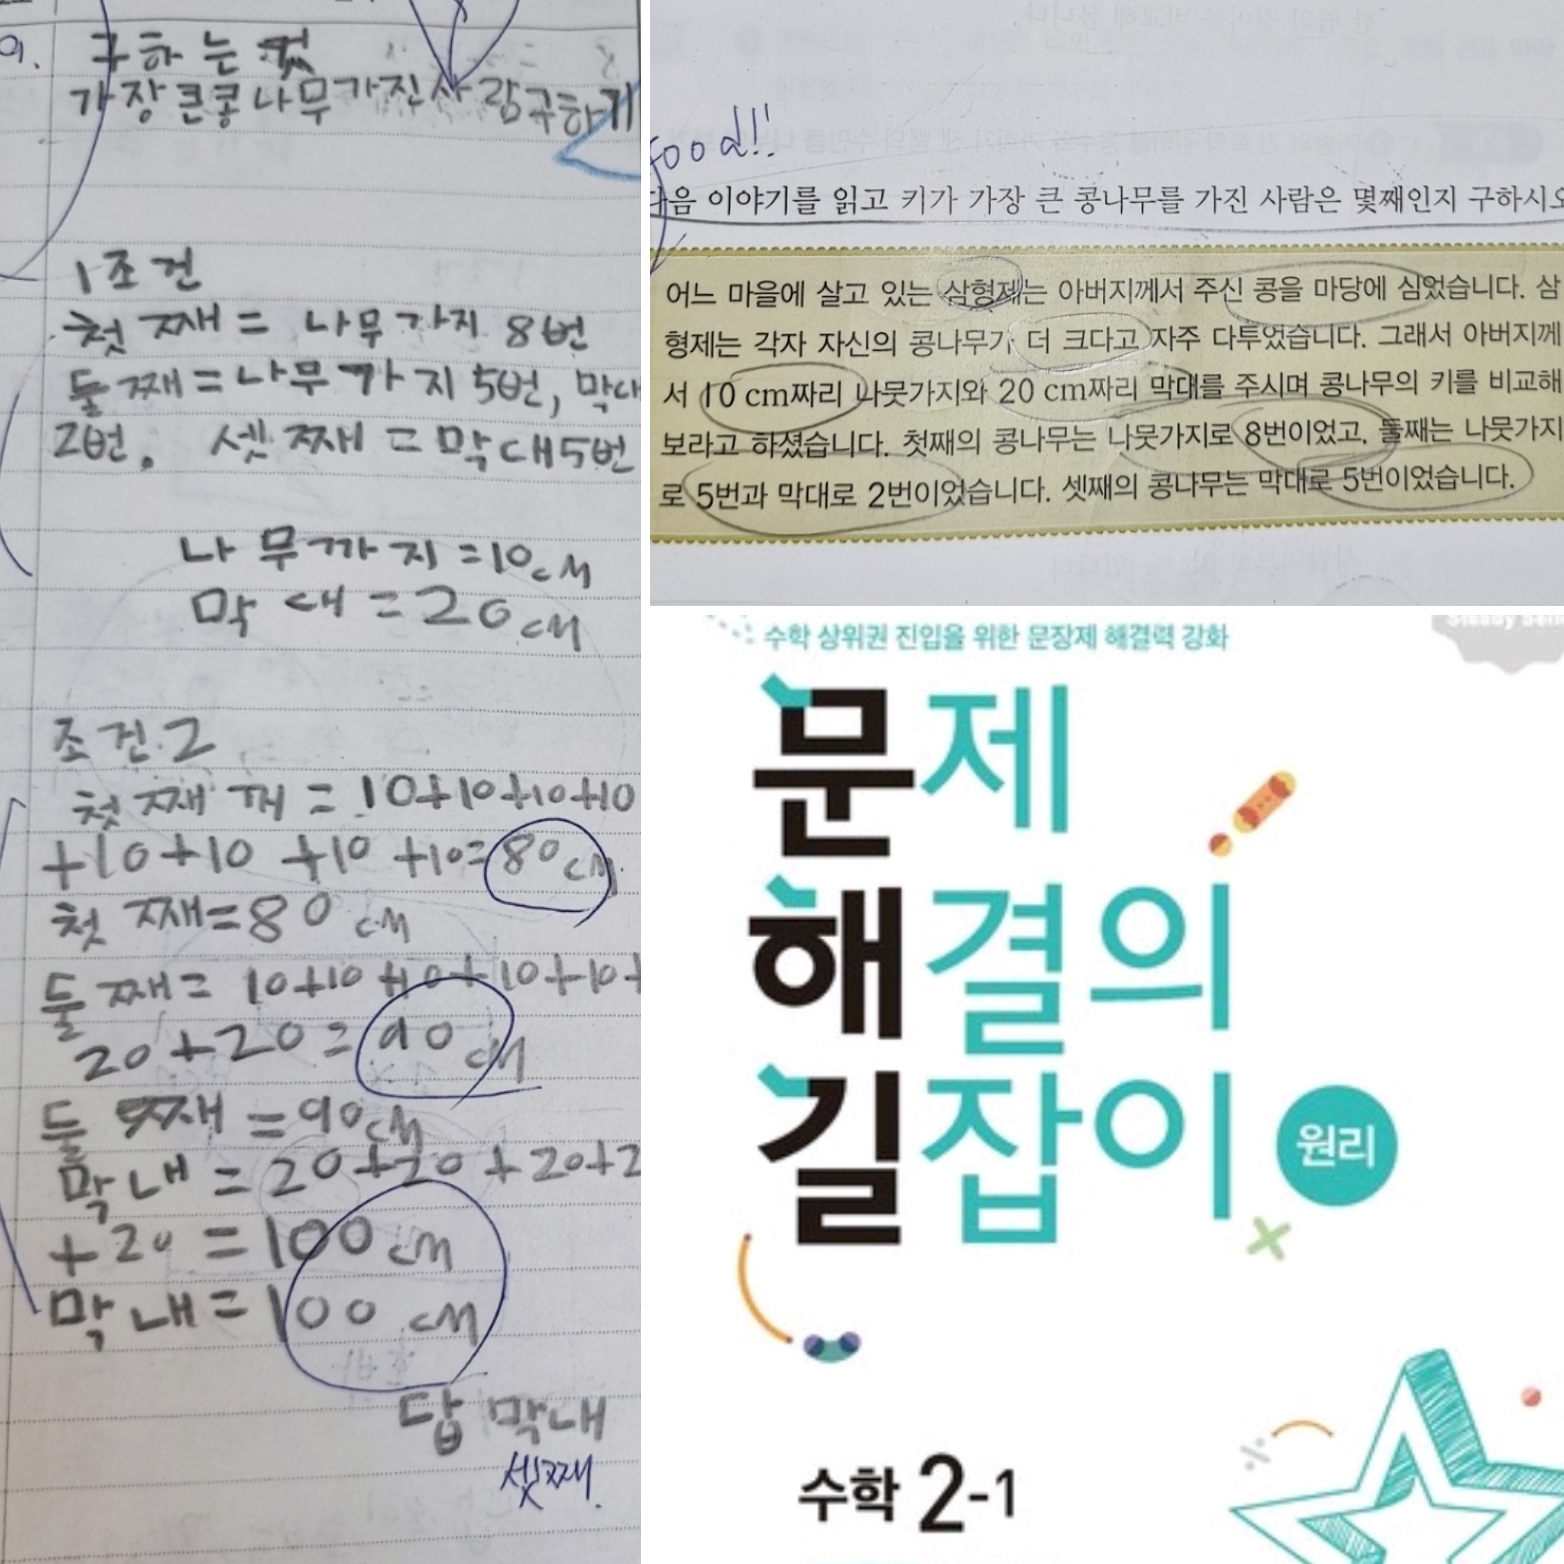 9.
구하는 것
가장큰콩나무가진사람구하기
1조건
첫째 = 나무가지 8번
둘째 = 나무가지 5번, 막대
2번. 셋째 = 막대5번
나무까지 =10cM
막대 = 20cM
조건.2
첫째 께 = 10+10+10+10
+10+10 +10 +10=80cM
첫째=80 cM
둘째= 10+10+10+10+10+
20+20=90cM
둘째 =90cM
막내 = 20+20+20+2
+20 = 100cM
막내=100 cM
답 막내
셋째.
Good!!
다음 이야기를 읽고 키가 가장 큰 콩나무를 가진 사람은 몇째인지 구하시오
어느 마을에 살고 있는 삼형제는 아버지께서 주신 콩을 마당에 심었습니다. 삼
형제는 각자 자신의 콩나무가 더 크다고 자주 다투었습니다. 그래서 아버지께
서 10 cm짜리 나뭇가지와 20 cm짜리 막대를 주시며 콩나무의 키를 비교해
보라고 하셨습니다. 첫째의 콩나무는 나뭇가지로 8번이었고, 둘째는 나뭇가지
로 5번과 막대로 2번이었습니다. 셋째의 콩나무는 막대로 5번이었습니다.
수학 상위권 진입을 위한 문장제 해결력 강화
문제
해결의
길잡이 원리
수학 2-1